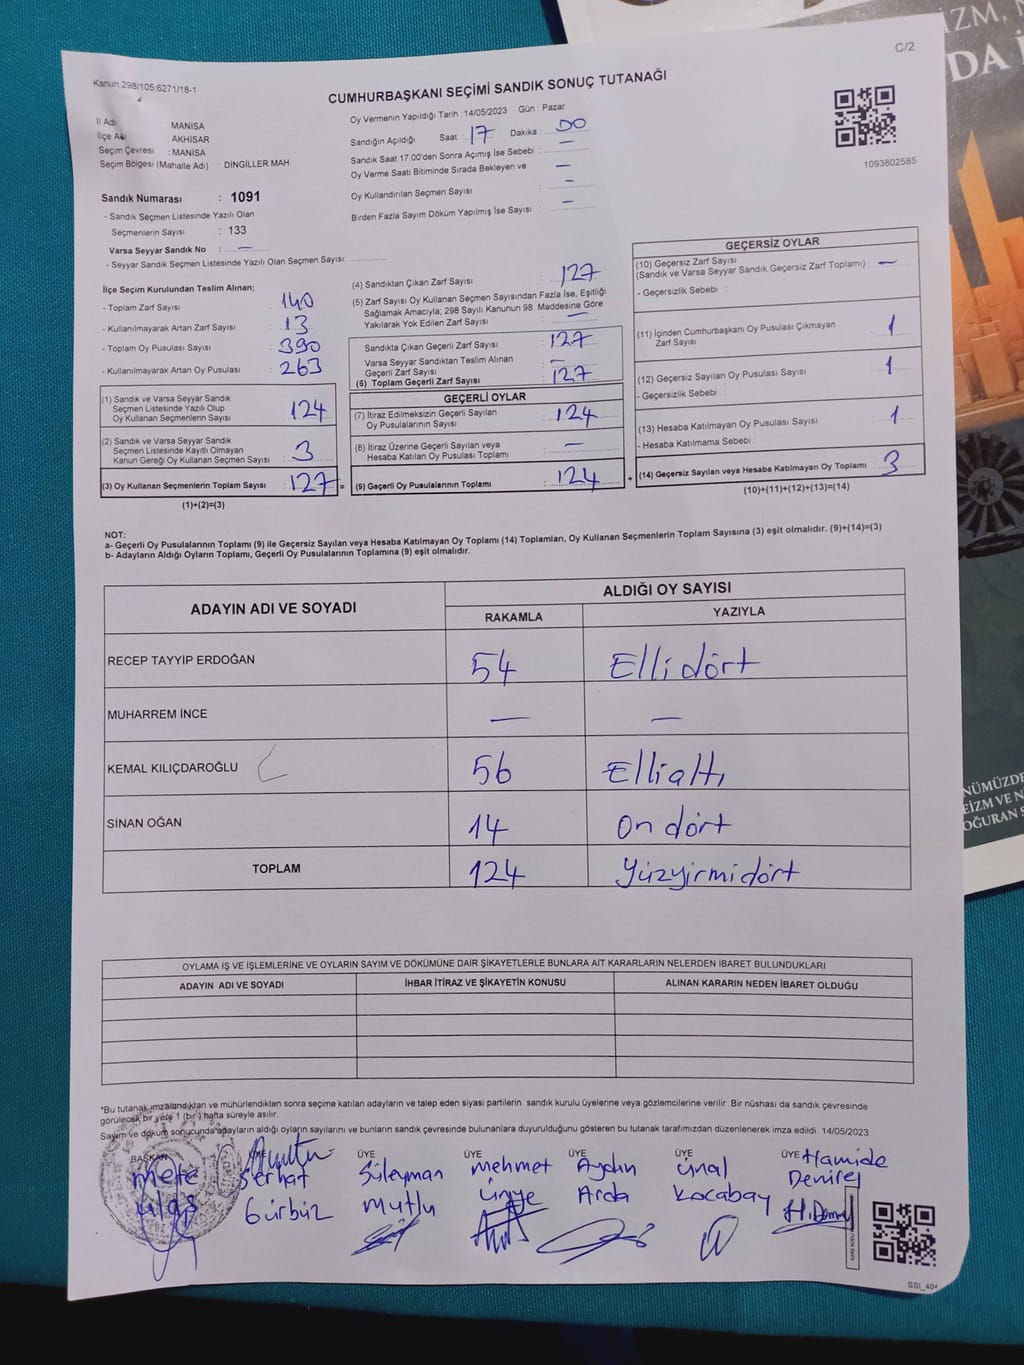 C/2
Kanun.298/105;6271/18-1
CUMHURBAŞKANI SEÇİMİ SANDIK SONUÇ TUTANAĞI
1093802585
İl Adı : MANİSA
İlçe Adı : AKHİSAR
Seçim Çevresi : MANİSA
Seçim Bölgesi (Mahalle Adı) : DİNGİLLER MAH.
Sandık Numarası : 1091
- Sandık Seçmen Listesinde Yazılı Olan
Seçmenlerin Sayısı : 133
Varsa Seyyar Sandık No : —
- Seyyar Sandık Seçmen Listesinde Yazılı Olan Seçmen Sayısı:
Oy Vermenin Yapıldığı Tarih : 14/05/2023 Gün : Pazar
Sandığın Açıldığı Saat : 17 Dakika : 00
Sandık Saat 17:00'den Sonra Açımış İse Sebebi : —
Oy Verme Saati Bitiminde Sırada Bekleyen ve —
Oy Kullandırılan Seçmen Sayısı : —
Birden Fazla Sayım Döküm Yapılmış İse Sayısı : —
İlçe Seçim Kurulundan Teslim Alınan;
- Toplam Zarf Sayısı : 140
- Kullanılmayarak Artan Zarf Sayısı : 13
- Toplam Oy Pusulası Sayısı : 390
- Kullanılmayarak Artan Oy Pusulası : 263
(1) Sandık ve Varsa Seyyar Sandık
Seçmen Listesinde Yazılı Olup
Oy Kullanan Seçmenlerin Sayısı : 124
(2) Sandık ve Varsa Seyyar Sandık
Seçmen Listesinde Kayıtlı Olmayan
Kanun Gereği Oy Kullanan Seçmen Sayısı : 3
(3) Oy Kullanan Seçmenlerin Toplam Sayısı : 127 =
(1)+(2)=(3)
(4) Sandıktan Çıkan Zarf Sayısı : 127
(5) Zarf Sayısı Oy Kullanan Seçmen Sayısından Fazla İse, Eşitliği
Sağlamak Amacıyla; 298 Sayılı Kanunun 98. Maddesine Göre
Yakılarak Yok Edilen Zarf Sayısı : —
Sandıkta Çıkan Geçerli Zarf Sayısı : 127
Varsa Seyyar Sandıktan Teslim Alınan
Geçerli Zarf Sayısı : —
(6) Toplam Geçerli Zarf Sayısı : 127
GEÇERLİ OYLAR
(7) İtiraz Edilmeksizin Geçerli Sayılan
Oy Pusulalarının Sayısı : 124
(8) İtiraz Üzerine Geçerli Sayılan veya
Hesaba Katılan Oy Pusulası Toplamı : —
(9) Geçerli Oy Pusulalarının Toplamı : 124 +
GEÇERSİZ OYLAR
(10) Geçersiz Zarf Sayısı
(Sandık ve Varsa Seyyar Sandık Geçersiz Zarf Toplamı) : —
- Geçersizlik Sebebi :
(11) İçinden Cumhurbaşkanı Oy Pusulası Çıkmayan
Zarf Sayısı : 1
(12) Geçersiz Sayılan Oy Pusulası Sayısı : 1
- Geçersizlik Sebebi :
(13) Hesaba Katılmayan Oy Pusulası Sayısı : 1
- Hesaba Katılmama Sebebi :
(14) Geçersiz Sayılan veya Hesaba Katılmayan Oy Toplamı : 3
(10)+(11)+(12)+(13)=(14)
NOT:
a- Geçerli Oy Pusulalarının Toplamı (9) ile Geçersiz Sayılan veya Hesaba Katılmayan Oy Toplamı (14) Toplamları, Oy Kullanan Seçmenlerin Toplam Sayısına (3) eşit olmalıdır. (9)+(14)=(3)
b- Adayların Aldığı Oyların Toplamı, Geçerli Oy Pusulalarının Toplamına (9) eşit olmalıdır.
ADAYIN ADI VE SOYADI ALDIĞI OY SAYISI
RAKAMLA YAZIYLA
RECEP TAYYİP ERDOĞAN 54 Elli dört
MUHARREM İNCE — —
KEMAL KILIÇDAROĞLU 56 Elli altı
SİNAN OĞAN 14 On dört
TOPLAM 124 Yüzyirmidört
OYLAMA İŞ VE İŞLEMLERİNE VE OYLARIN SAYIM VE DÖKÜMÜNE DAİR ŞİKAYETLERLE BUNLARA AİT KARARLARIN NELERDEN İBARET BULUNDUKLARI
ADAYIN ADI VE SOYADI İHBAR İTİRAZ VE ŞİKAYETİN KONUSU ALINAN KARARIN NEDEN İBARET OLDUĞU
*Bu tutanak imzalandıktan ve mühürlendikten sonra seçime katılan adayların ve talep eden siyasi partilerin sandık kurulu üyelerine veya gözlemcilerine verilir. Bir nüshası da sandık çevresinde
görülecek bir yere 1 (bir) hafta süreyle asılır.
Sayım ve döküm sonucunda adayların aldığı oyların sayılarını ve bunların sandık çevresinde bulunanlara duyurulduğunu gösteren bu tutanak tarafımızdan düzenlenerek imza edildi. 14/05/2023
BAŞKAN ÜYE ÜYE ÜYE ÜYE ÜYE
mete Serhat Süleyman mehmet Aydın Ünal Hamide
ulaş Gürbüz mutlu Ünye Arda Kocabay Denirel
H.Demirel
SSİ_404
İZM,
DA İ
NÜMÜZDE
EİZM VE N
OĞURAN S